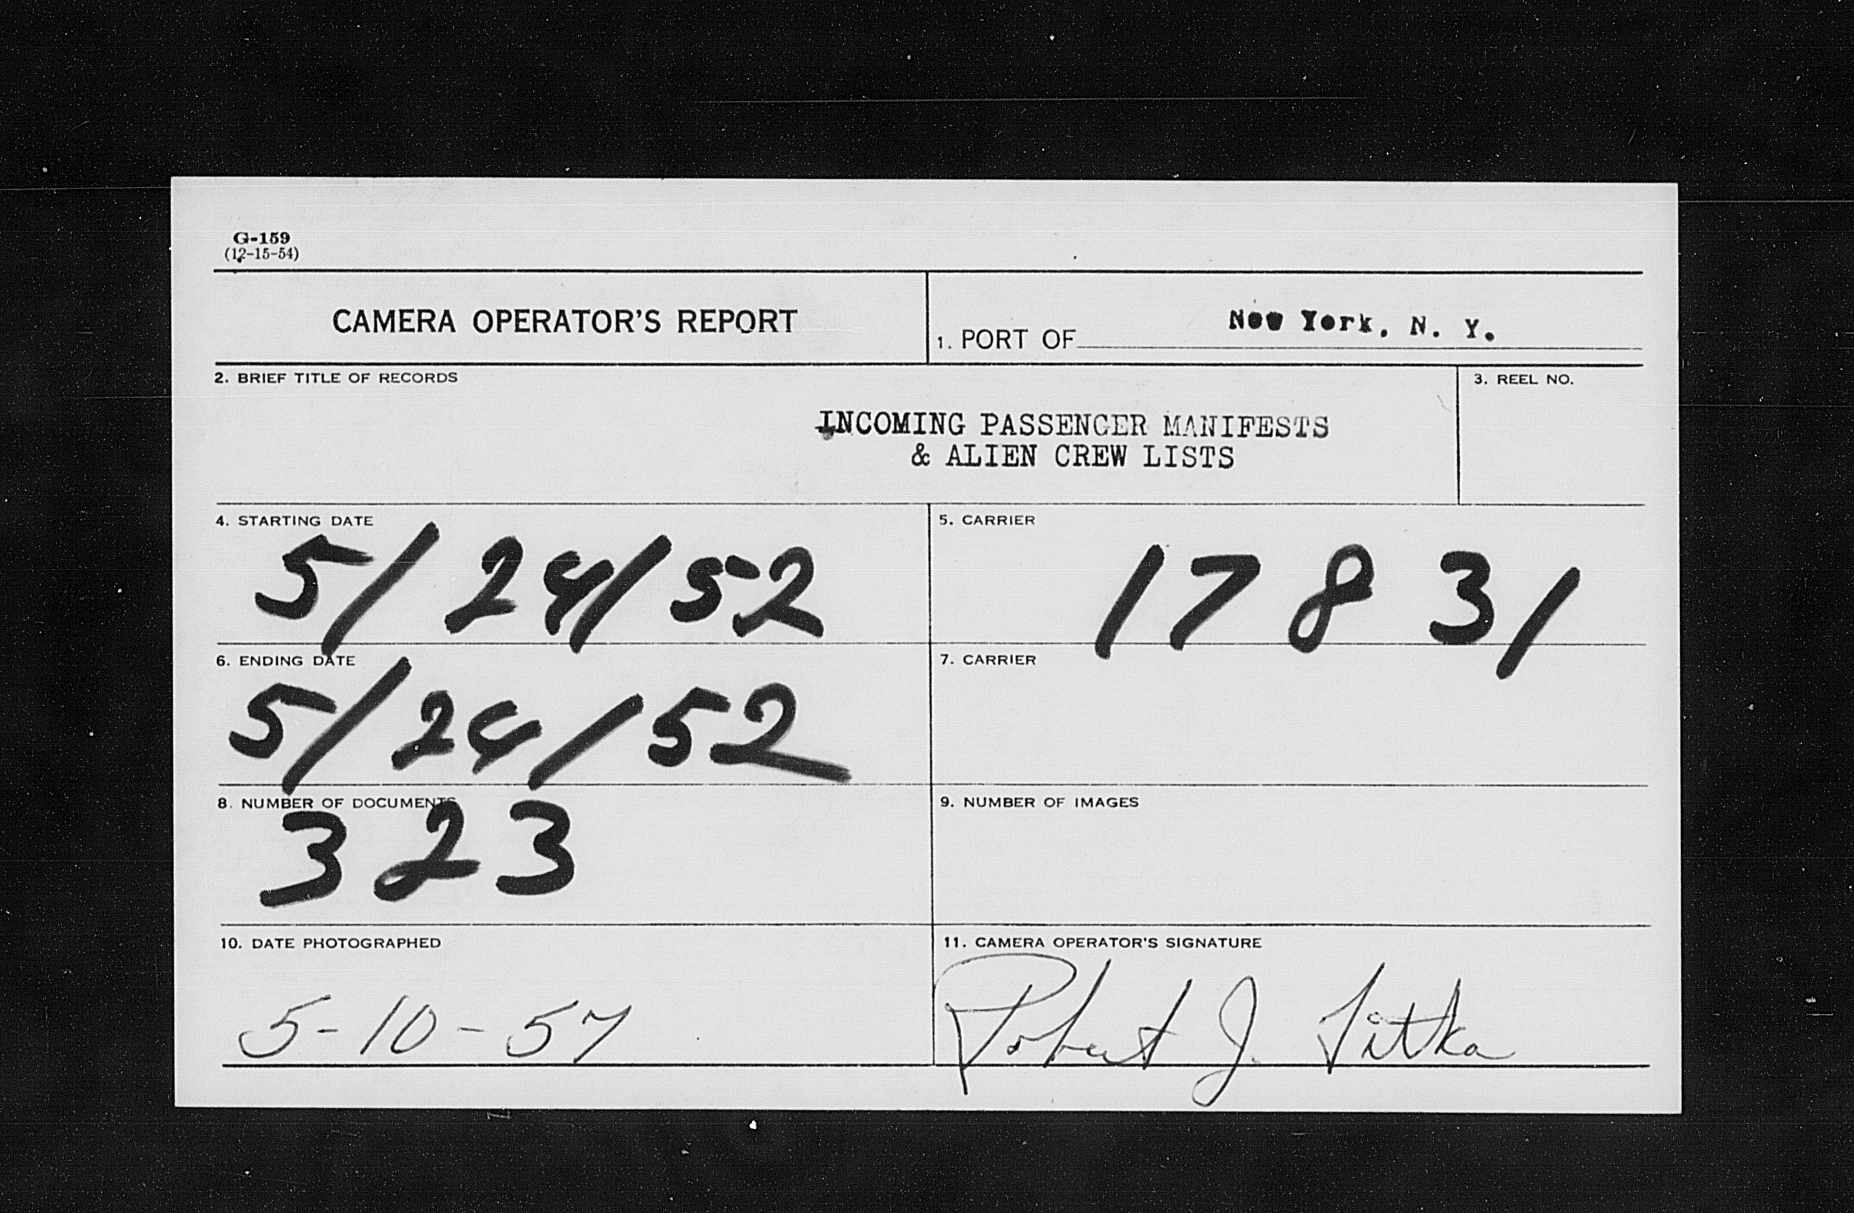 G-159
(12-15-54)
CAMERA OPERATOR'S REPORT
1. PORT OF New York, N. Y.
2. BRIEF TITLE OF RECORDS
3. REEL NO.
INCOMING PASSENGER MANIFESTS
& ALIEN CREW LISTS
4. STARTING DATE
5/24/52
5. CARRIER
17831
6. ENDING DATE
5/24/52
7. CARRIER
8. NUMBER OF DOCUMENTS
323
9. NUMBER OF IMAGES
10. DATE PHOTOGRAPHED
5-10-57
11. CAMERA OPERATOR'S SIGNATURE
Robert J.